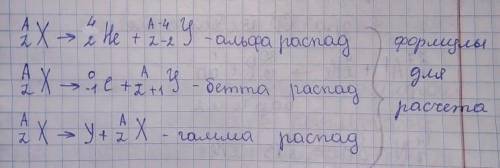 ᴬ₂X → ⁴₂He + ᴬ⁻⁴₂₋₂У - альфа распад
ᴬ₂X → ⁰₋₁e + ᴬ₂₊₁У - бетта распад
ᴬ₂X → У + ᴬ₂X - гамма распад
формулы
для
расчета